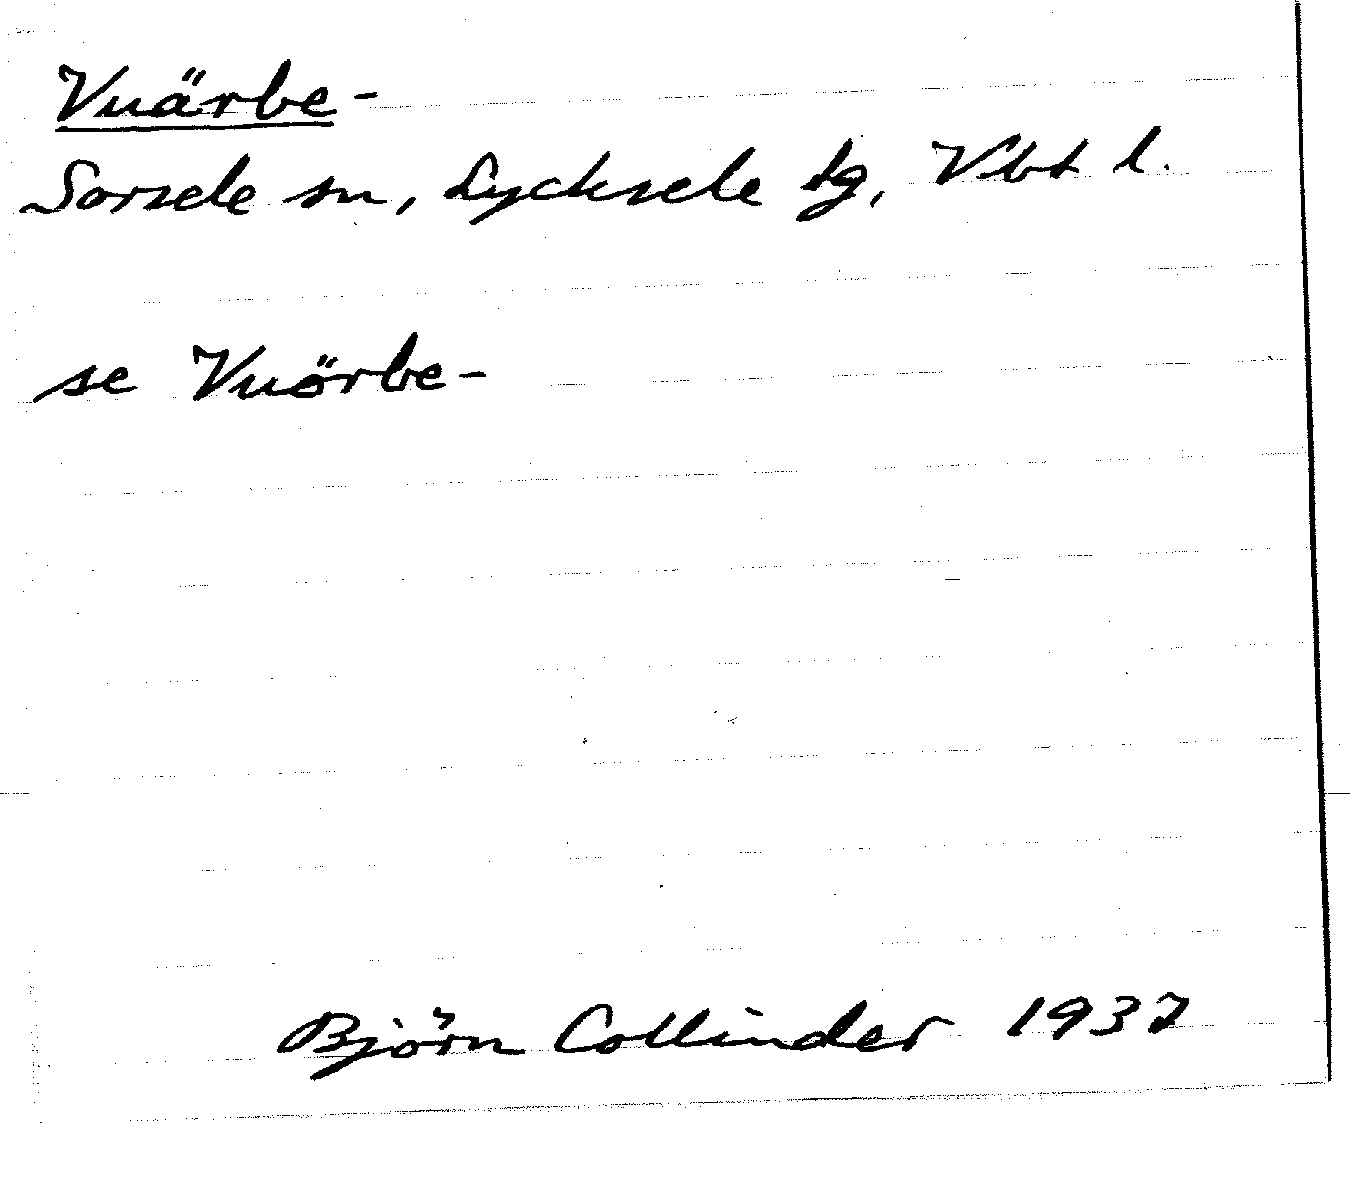 Vuärbe-
Sorsele sn, Lycksele tg, Vbt l.
se Vuörbe-
Björn Collinder 1937